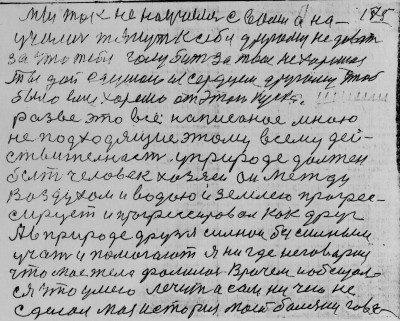 175
мы так не научились с вами а на-
учились тянуть к себе другому не давать
за что тебя голубить за твое нехорошее
ты дай с душою и сердцем другому чтоб
было ему хорошо от этого куска.
разве это всё написанное мною
не подходящие этому всему дей-
ствительность. у природе должен
быть человек хозяин он между
воздухом и водою и землею прогрес-
сирует и прогрессировал как друг
А в природе друзья сильной бессильным
учат и помогают я нигде не говорил
что моя тема
Врачем и обещал-
ся что умею лечить а сам ни чего не
сделал моя история мой болезни гово